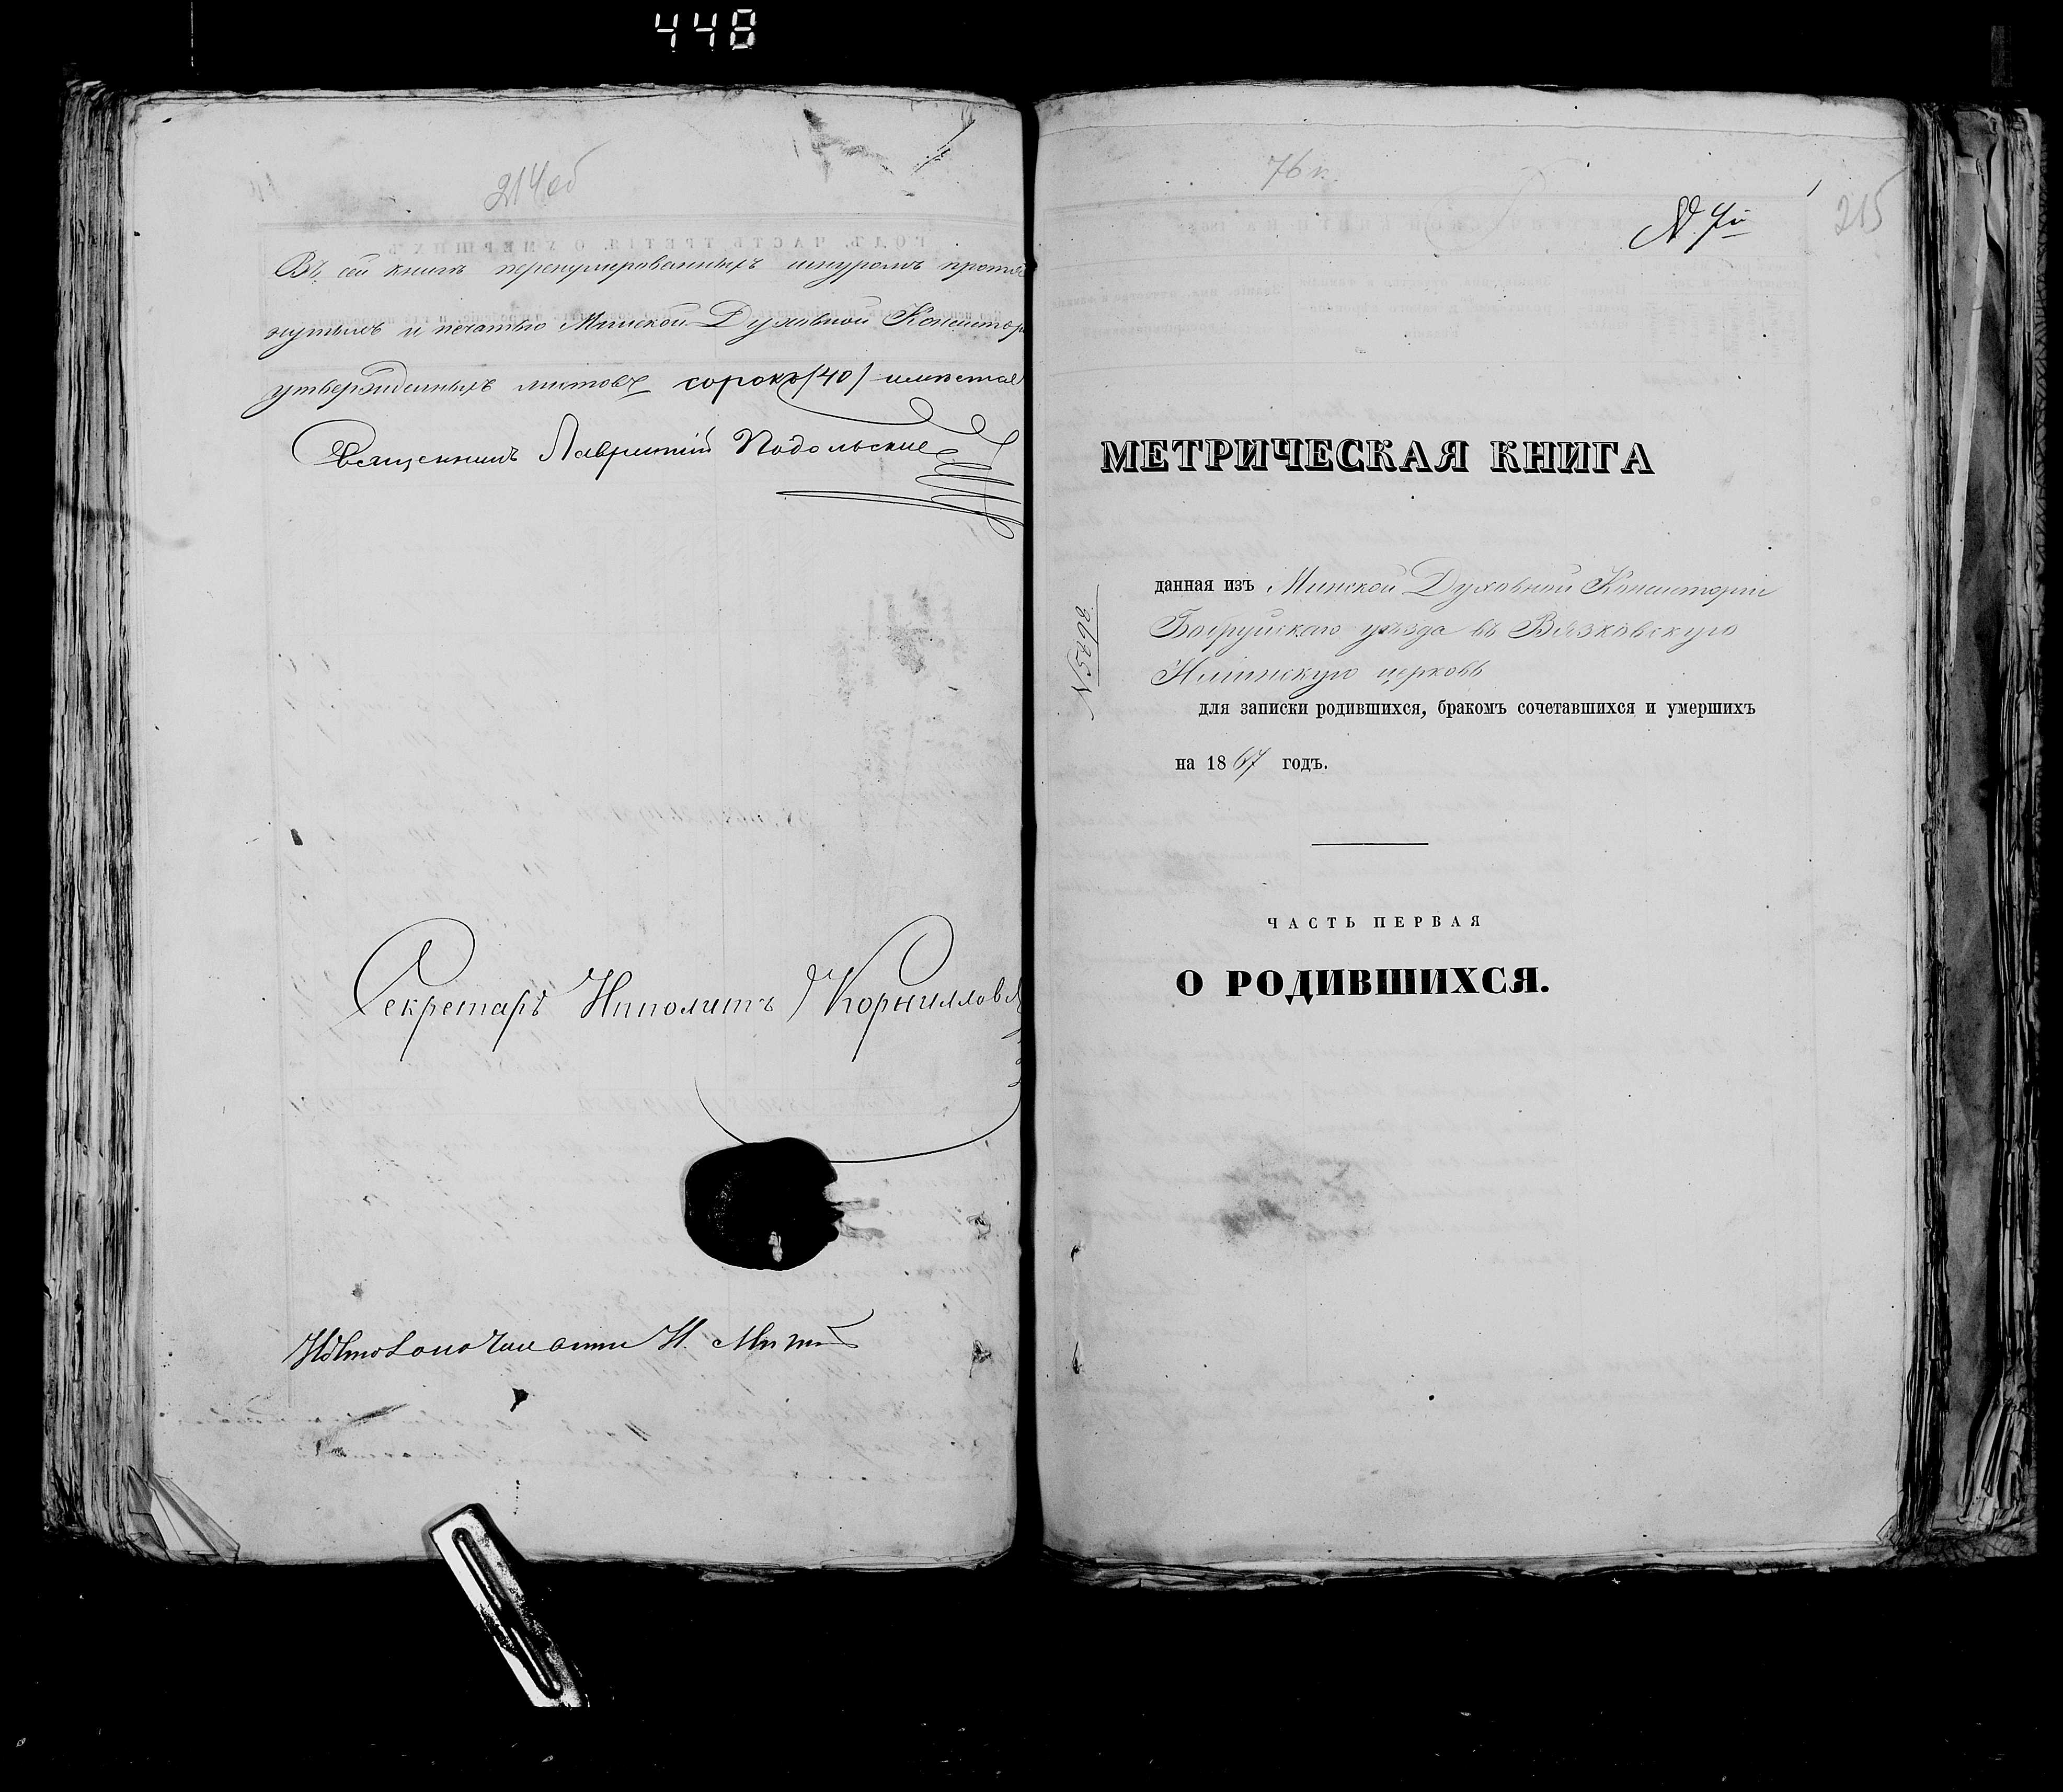 448
214об
Въ сей книгѣ перенумерованныхъ шнуромъ протя
нутыхъ и печатью Минской Духовной Консистор
утвержденныхъ листовъ сорокъ (40) имѣется
Священникъ Лаврентій Подольский
Секретарь Ипполитъ Корниллов
Столоначальникъ И.
76 к.
215
МЕТРИЧЕСКАЯ КНИГА
№ 5898
данная изъ Минской Духовной Консисторіи
Бобруйскаго уѣзда въ Вязковскую
Ильинскую церковь
для записки родившихся, бракомъ сочетавшихся и умершихъ
на 1867 годъ.
ЧАСТЬ ПЕРВАЯ
О РОДИВШИХСЯ.